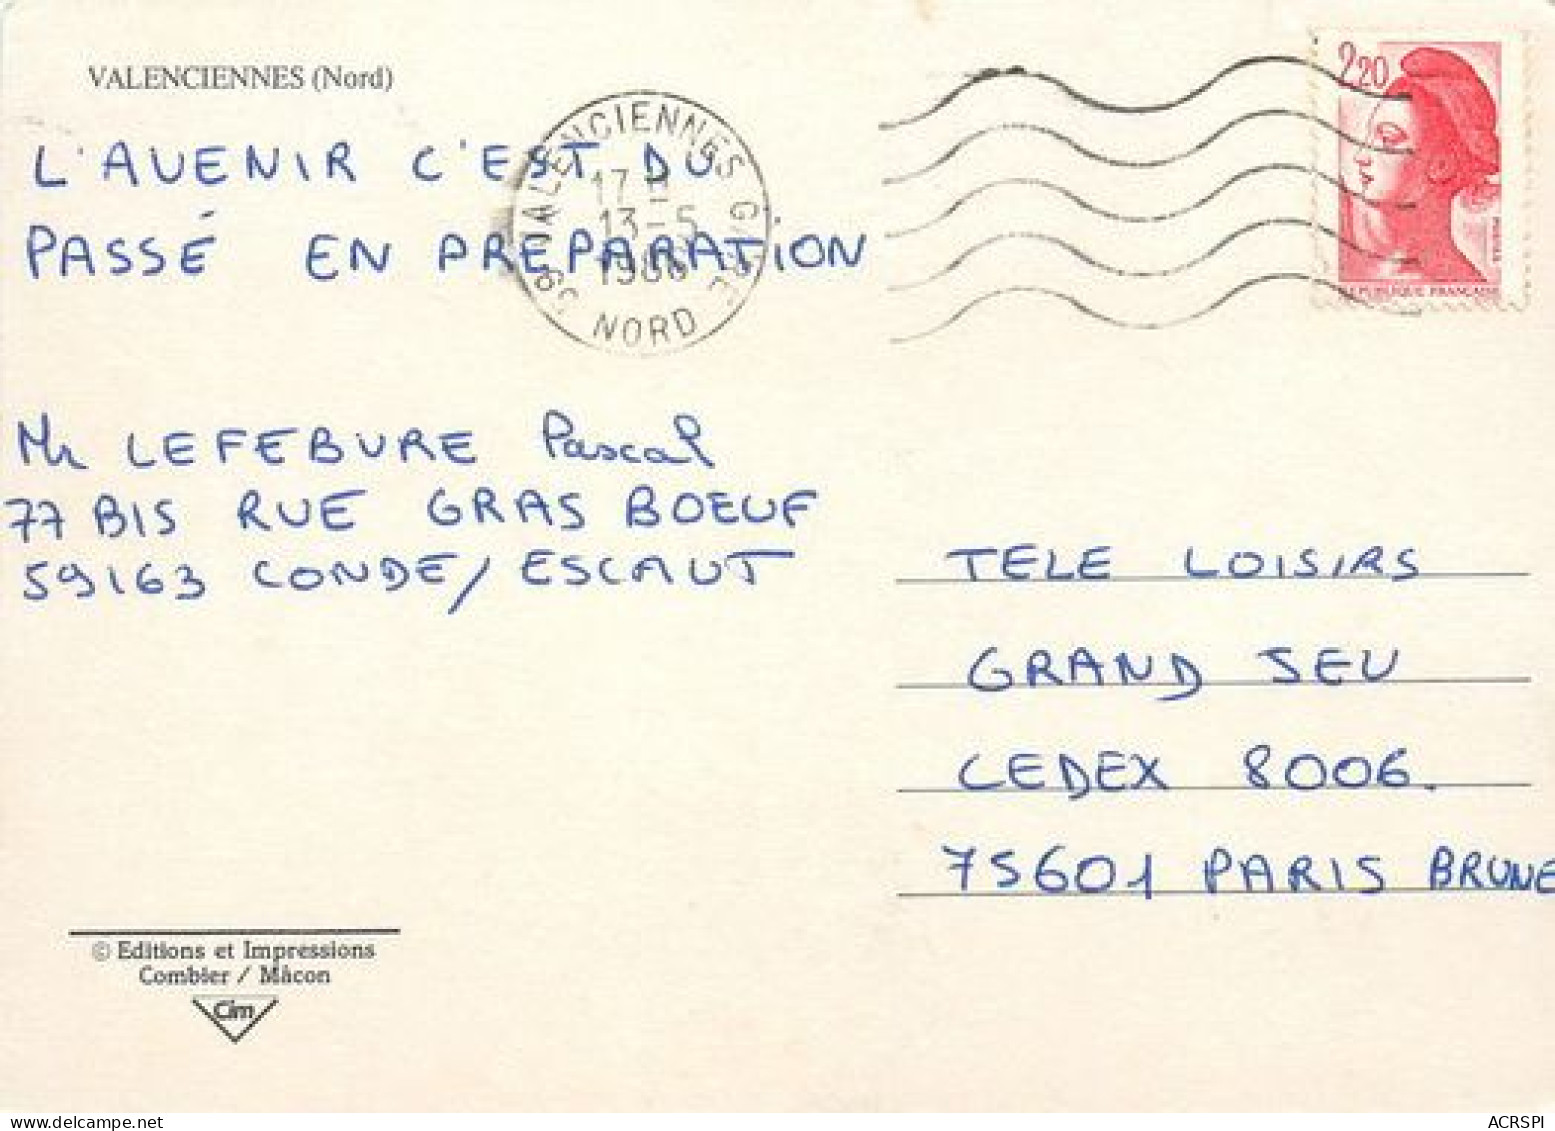 VALENCIENNES (Nord)
L'AVENIR C'EST DU
PASSÉ EN PREPARATION
VALENCIENNES GARE
17 H
13-5
1988
NORD
2,20
REPUBLIQUE FRANÇAISE
Mr LEFEBURE Pascal
77 BIS RUE GRAS BOEUF
59163 CONDE/ESCAUT
TELE LOISIRS
GRAND JEU
CEDEX 8006.
75601 PARIS BRUNE
© Editions et Impressions
Combier / Mâcon
Cim
ACRSPI